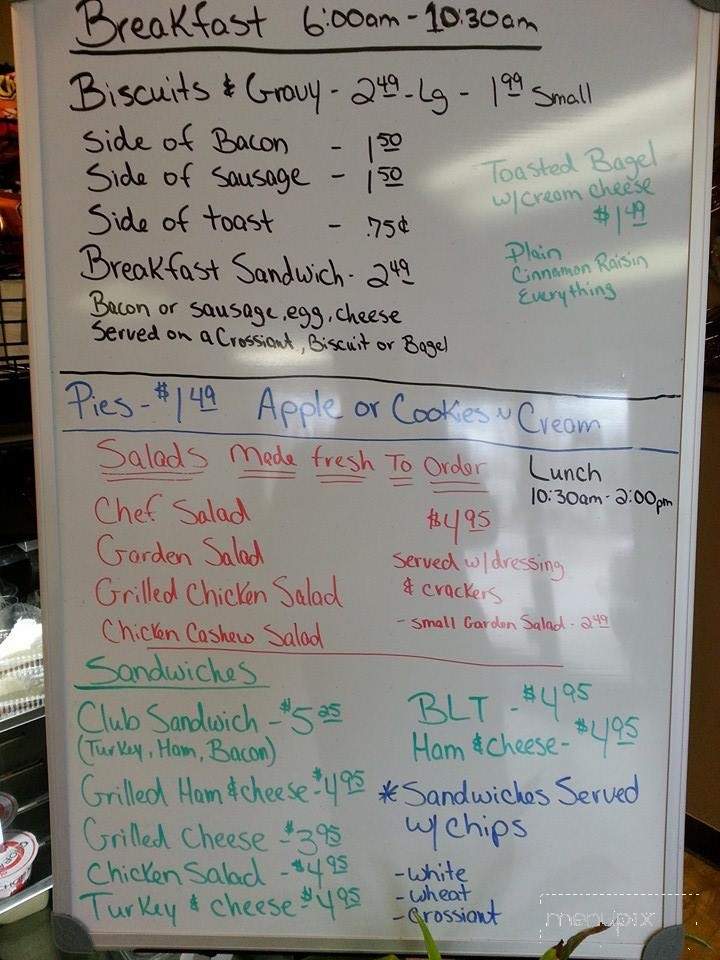 Breakfast 6:00am - 10:30am
Biscuits & Gravy - 2.49 - Lg - 1.99 Small
Side of Bacon - 1.50
Side of sausage - 1.50
Side of toast - .75¢
Breakfast Sandwich - 2.49
Bacon or sausage, egg, cheese
Served on a Crossiant, Biscuit or Bagel
Toasted Bagel
w/cream cheese
$1.49
Plain
Cinnamon Raisin
Everything
Pies - $1.49 Apple or Cookies N Cream
Salads Made fresh To Order
Lunch
10:30am - 2:00pm
Chef Salad
Garden Salad
Grilled Chicken Salad
Chicken Cashew Salad
$4.95
Served w/dressing
& crackers
- small Garden Salad - 2.49
Sandwiches
Club Sandwich - $5.25
(Turkey, Ham, Bacon)
Grilled Ham & cheese - $4.95
Grilled Cheese - $3.95
Chicken Salad - $4.95
Turkey & cheese - $4.95
BLT - $4.95
Ham & cheese - $4.95
*Sandwiches Served
w/ chips
- white
- wheat
- Crossiant
menupix